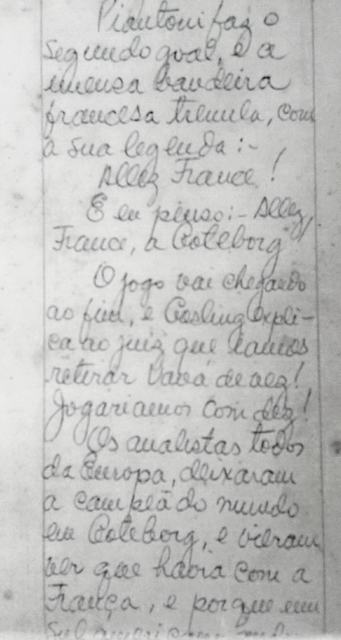 Piantoni faz o
segundo goal, e a
imensa bandeira
francesa tremula, com
a sua legenda:-
Allez France!
E eu penso:- Allez,
France, a Goteborg"
O jogo vai chegando
ao fim, e Gosling expli-
ca ao juiz que vamos
retirar Vavá de vez!
Jogariamos com dez!
Os analistas todos
da Europa, deixaram
a campeã do mundo
em Goteborg, e vieram
ver que havia com a
França, e porque um